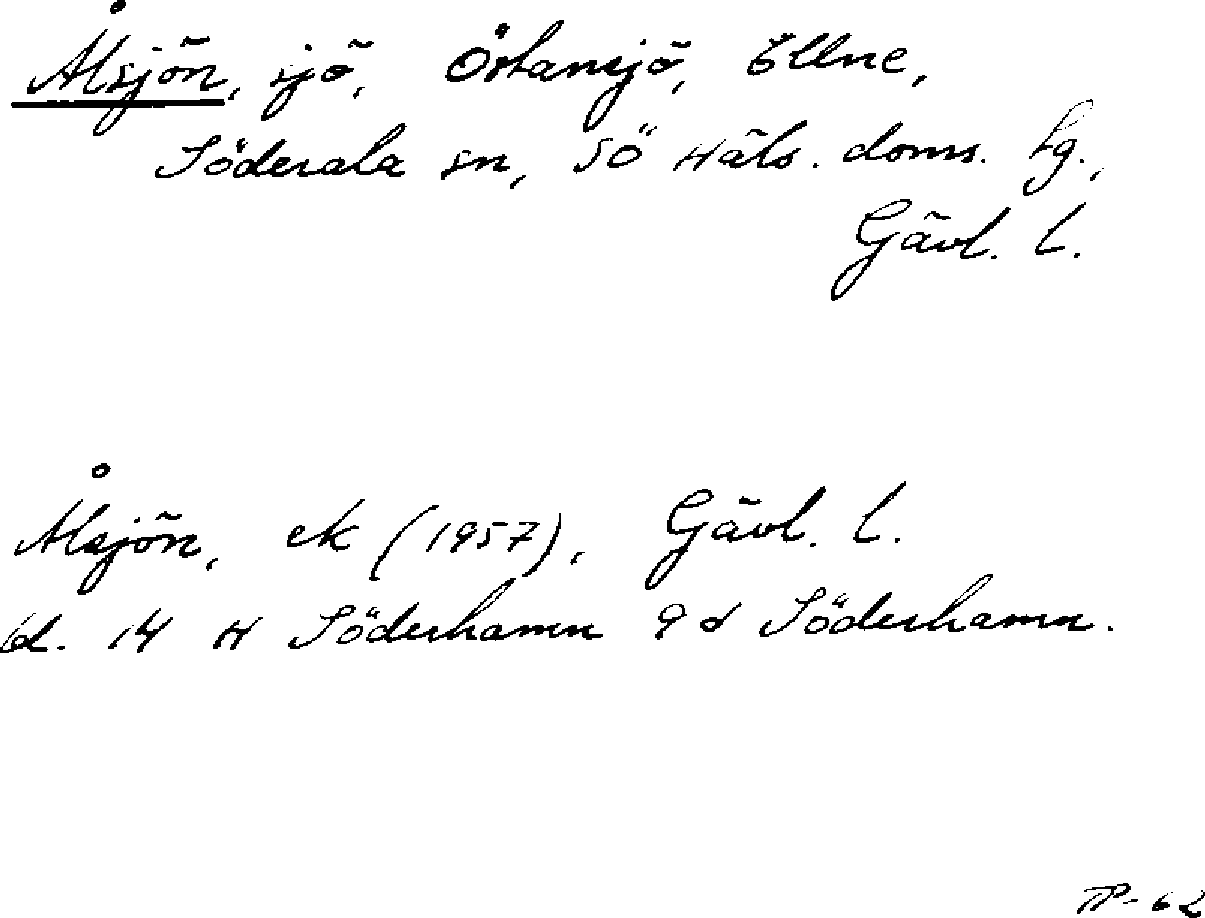 Ålsjön, sjö, Östansjö, Ellne,
Söderala sn, SÖ Häls. doms. tg.,
Gävl. l.
Ålsjön, ek (1957), Gävl. l.
bl. 14 H Söderhamn 9 d Söderhamn.
TP-62